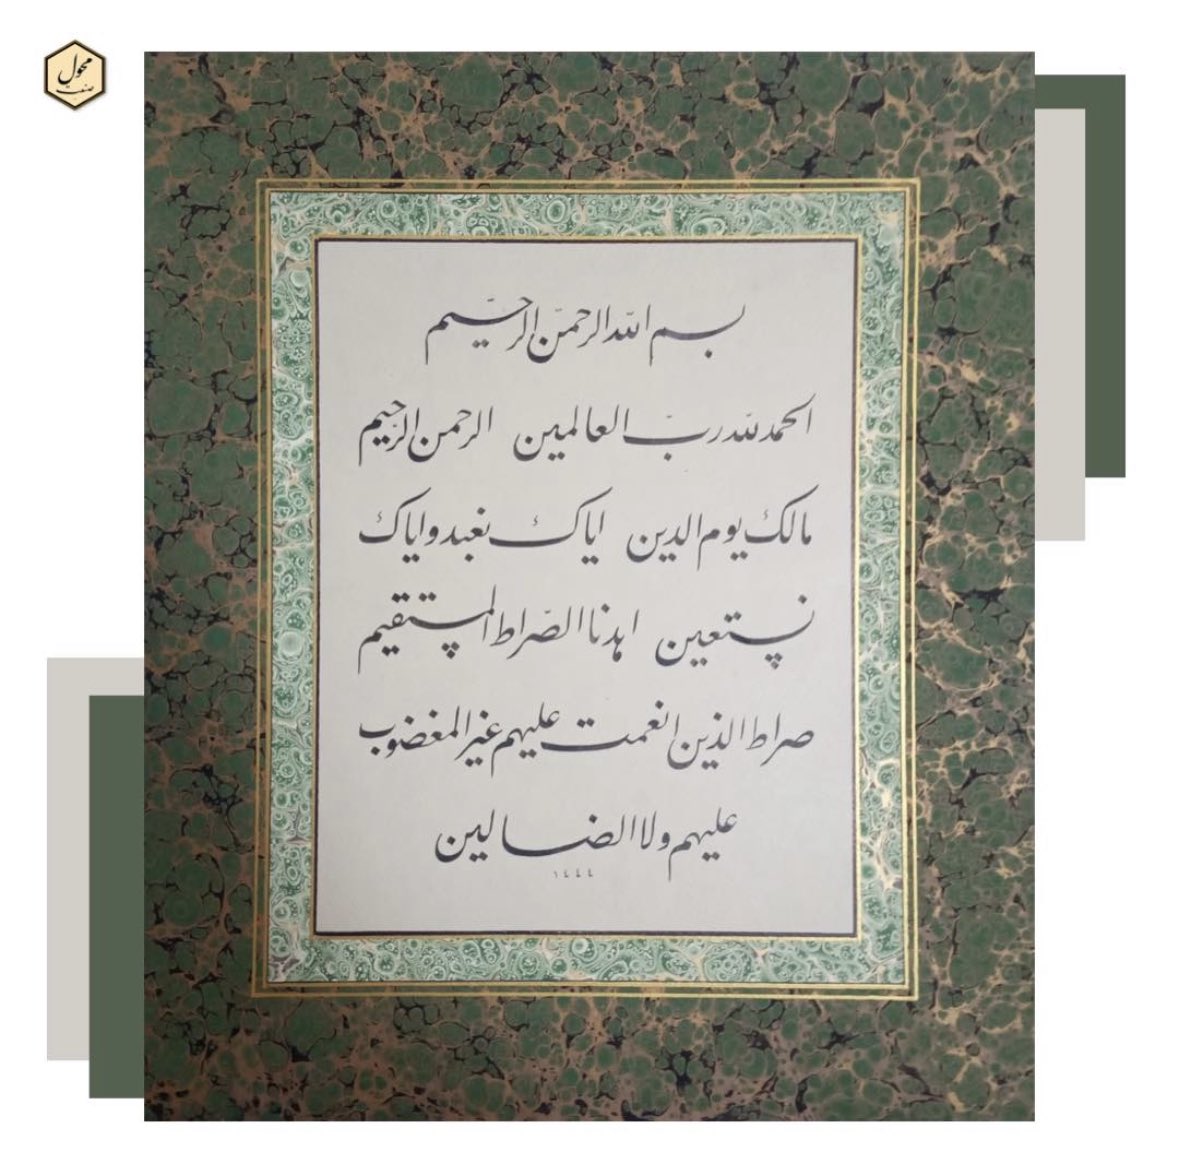 محول
صنعت
بسم الله الرحمن الرحیم
الحمد لله رب العالمین الرحمن الرحیم
مالك یوم الدین ایاك نعبد و ایاك
نستعین اهدنا الصراط المستقیم
صراط الذین انعمت علیهم غیر المغضوب
علیهم ولا الضالین
١٤٤٤